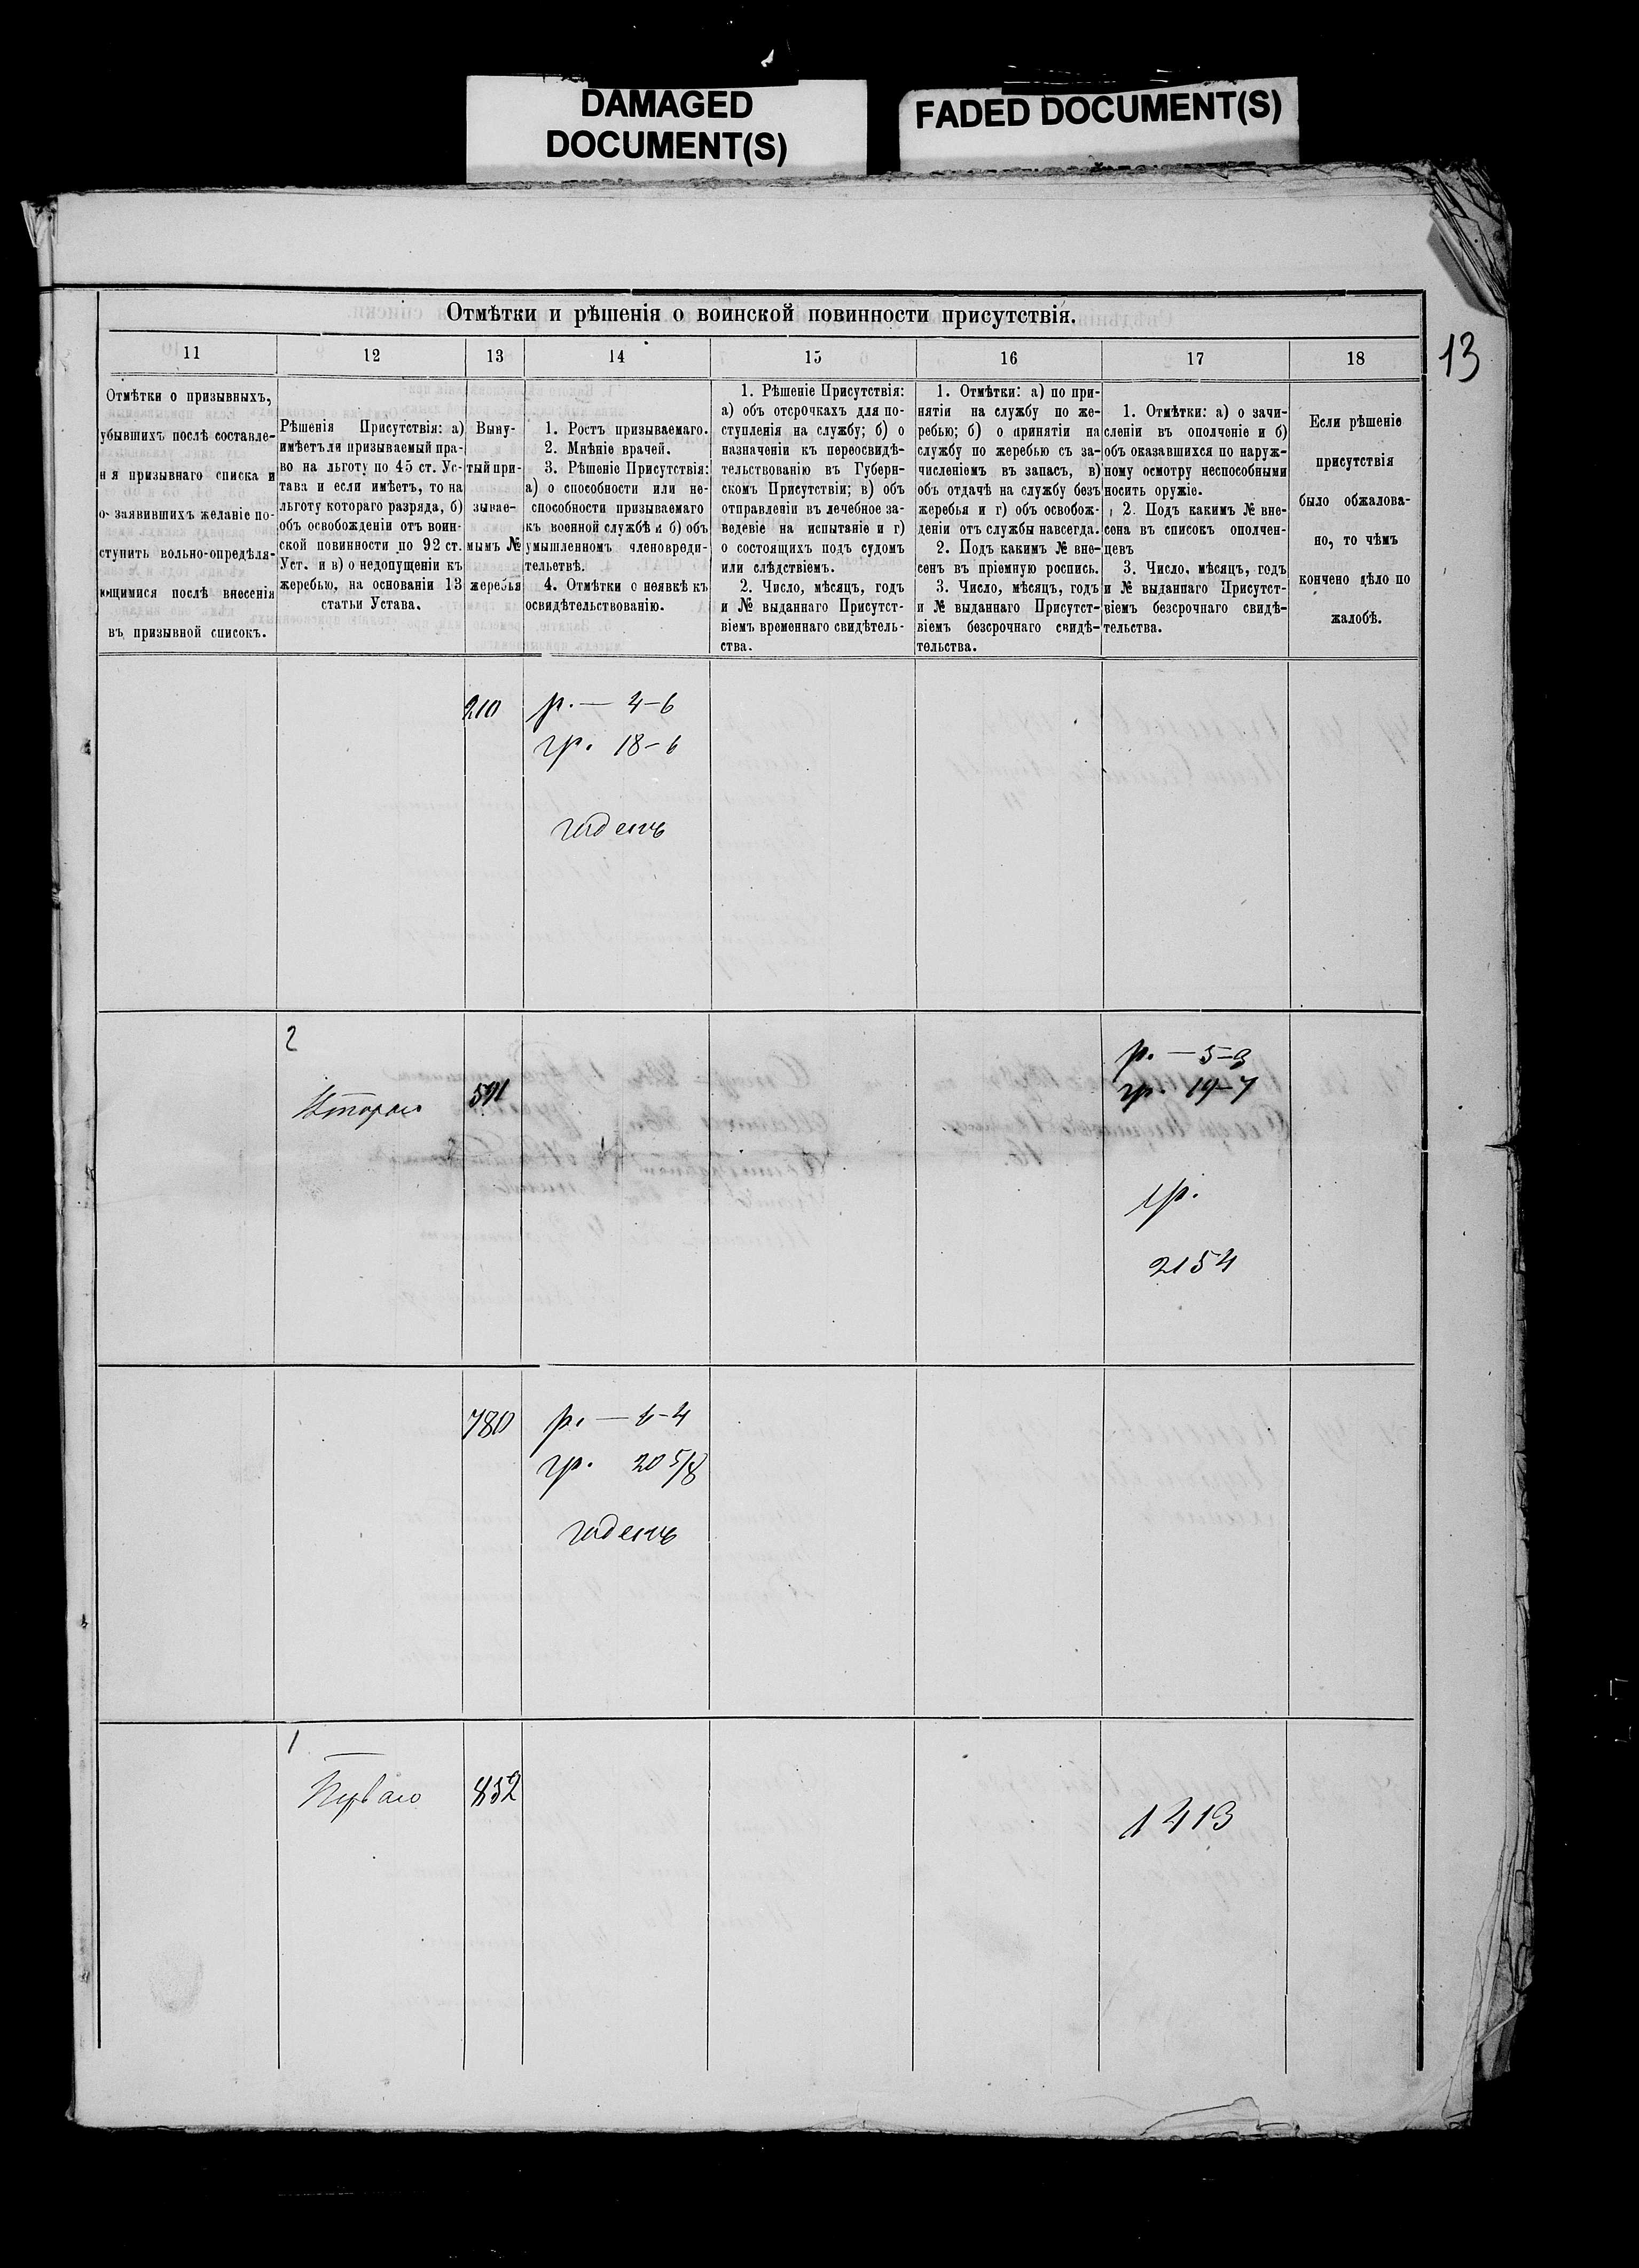 DAMAGED
DOCUMENT(S)
FADED DOCUMENT(S)
13
Отмѣтки и рѣшенія о воинской повинности присутствія.
11
12
13
14
15
16
17
18
Отмѣтки о призывныхъ,
убывшихъ послѣ составле-
нія призывнаго списка и
о заявившихъ желаніе по-
ступить вольно-опредѣля-
ющимися послѣ внесенія
въ призывной списокъ.
Рѣшенія Присутствія: а)
имѣетъ ли призываемый пра-
во на льготу по 45 ст. Ус-
тава и если имѣетъ, то на
льготу котораго разряда, б)
объ освобожденіи отъ воин-
ской повинности по 92 ст.
Уст. и в) о недопущеніи къ
жеребью, на основаніи 13
статьи Устава.
Выну-
тый при-
зывае-
мымъ №
жеребья
1. Ростъ призываемаго.
2. Мнѣніе врачей.
3. Рѣшеніе Присутствія:
а) о способности или не-
способности призываемаго
къ военной службѣ и б) объ
умышленномъ членовреди-
тельствѣ.
4. Отмѣтки о неявкѣ къ
освидѣтельствованію.
1. Рѣшеніе Присутствія:
а) объ отсрочкахъ для по-
ступленія на службу; б) о
назначеніи къ переосвидѣ-
тельствованію въ Губерн-
скомъ Присутствіи; в) объ
отправленіи въ лечебное за-
веденіе на испытаніе и г)
о состоящихъ подъ судомъ
или слѣдствіемъ.
2. Число, мѣсяцъ, годъ
и № выданнаго Присутст-
віемъ временнаго свидѣтель-
ства.
1. Отмѣтки: а) по при-
нятіи на службу по же-
ребью; б) о принятіи на
службу по жеребью съ за-
численіемъ въ запасъ, в)
объ отдачѣ на службу безъ
жеребья и г) объ освобож-
деніи отъ службы навсегда.
2. Подъ какимъ № вне-
сенъ въ пріемную роспись.
3. Число, мѣсяцъ, годъ
и № выданнаго Присутст-
віемъ безсрочнаго свидѣ-
тельства.
1. Отмѣтки: а) о зачи-
сленіи въ ополченіе и б)
объ оказавшихся по наруж-
ному осмотру неспособными
носить оружіе.
2. Подъ какимъ № вне-
сена въ списокъ ополчен-
цевъ
3. Число, мѣсяцъ, годъ
и № выданнаго Присутст-
віемъ безсрочнаго свидѣ-
тельства.
Если рѣшеніе
присутствія
было обжалова-
но, то чѣмъ
кончено дѣло по
жалобѣ.
210
р. — 4-6
гр. 18-6
годенъ
2
Втораго
501
р. — 5-3
гр. 19-7
гр.
2154
780
р. — 6-4
гр. 20 5/8
годенъ
1
Перваго
852
1413